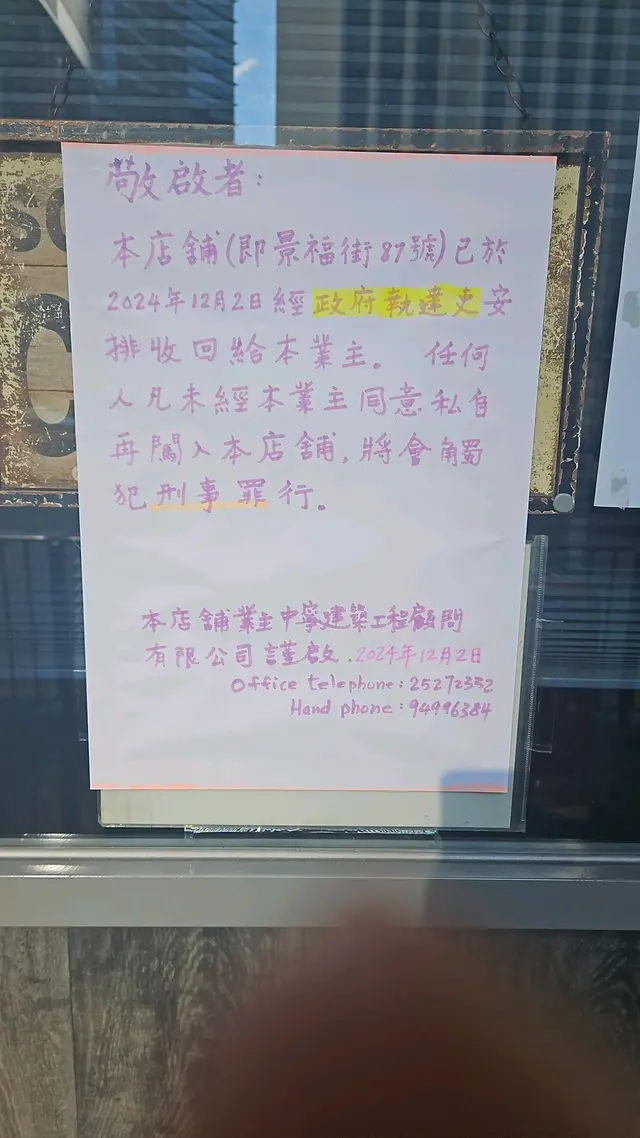 敬啟者：
本店舖(即景福街87號)已於
2024年12月2日經政府執達吏安
排收回給本業主。 任何
人凡未經本業主同意私自
再闖入本店舖,將會觸
犯刑事罪行。
本店舖業主中寧建築工程顧問
有限公司謹啟.2024年12月2日
Office telephone: 25272332
Hand phone: 94996384